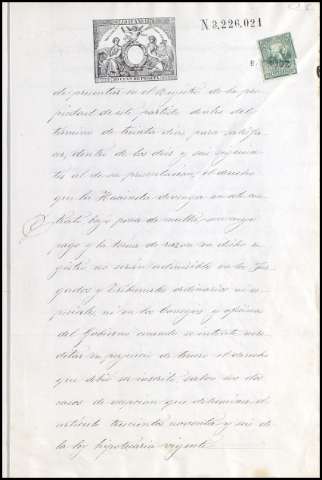 N 3,226,021
de presentar en el Registro de la pro
piedad de este partido dentro del
término de treinta dias para satisfa
cer, dentro de los dias y seis siguien
tes al de su presentacion, el derecho
que la Hacienda devenga en este con
trato bajo pena de multa, sin cuyo
pago y la toma de razon en dicho re
gistro no serán admisible en los Juz
gados y Tribunales ordinarios ni es
peciales, ni en los Consejos y oficinas
del Gobierno cuando se intente
en perjuicio de tercero el derecho
que debió ser inscrito, salvo los dos
casos de escepcion que determina el
artículo trescientos noventa y seis de
la ley hipotecaria vigente